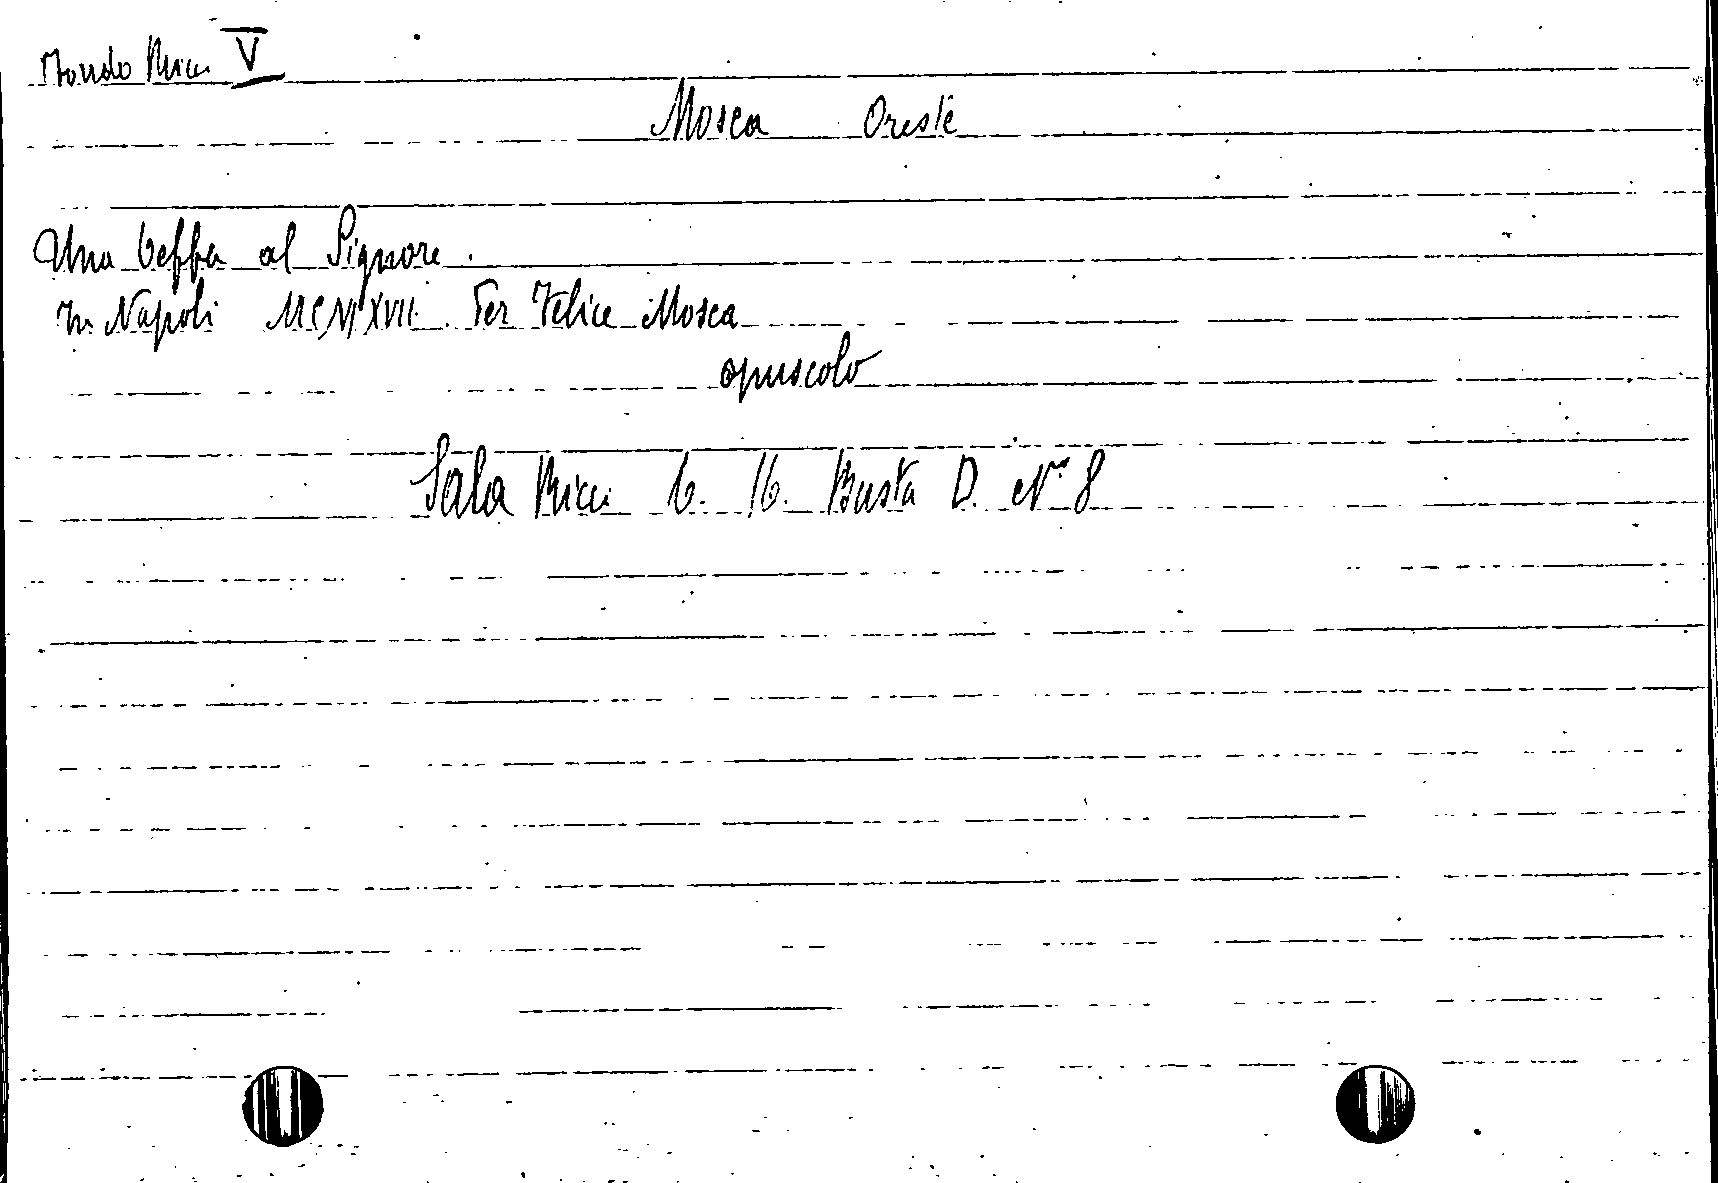 Fondo Ricci V
Mosca Oreste
Una beffa al Signore.
In Napoli MCMXVII. Per Felice Mosca
opuscolo
Sala Ricci 6. 16. Busta D. N° 8